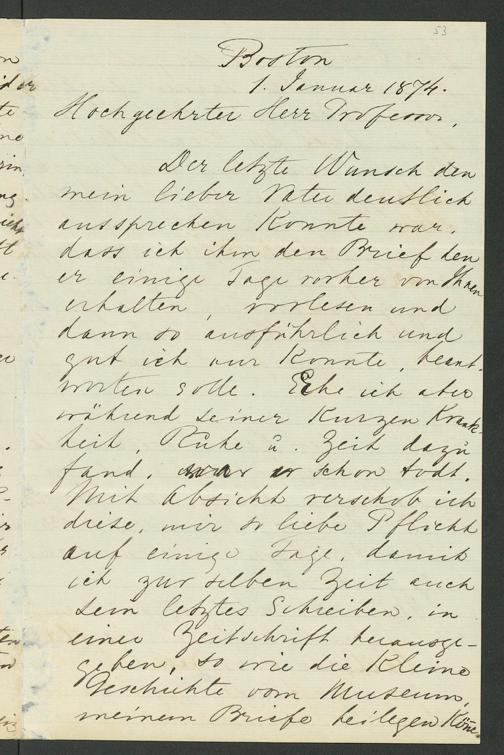 53
Boston
1. Januar 1874.
Hochgeehrter Herr Professor,
Der letzte Wunsch den
mein lieber Vater deutlich
aussprechen konnte war,
dass ich ihm den Brief den
er einige Tage vorher von Ihnen
erhalten, vorlesen und
dann so ausführlich und
gut ich nur konnte, beant-
worten solle. Ehe ich aber
während seiner kurzen Krank-
heit, Ruhe u. Zeit dazu
fand, war er schon todt.
Mit Absicht verschob ich
diese, mir so liebe Pflicht
auf einige Tage, damit
ich zur selben Zeit auch
sein letztes Schreiben, in
einer Zeitschrift herausge-
geben, so wie die kleine
Geschichte vom Museum,
meinem Briefe beilegen